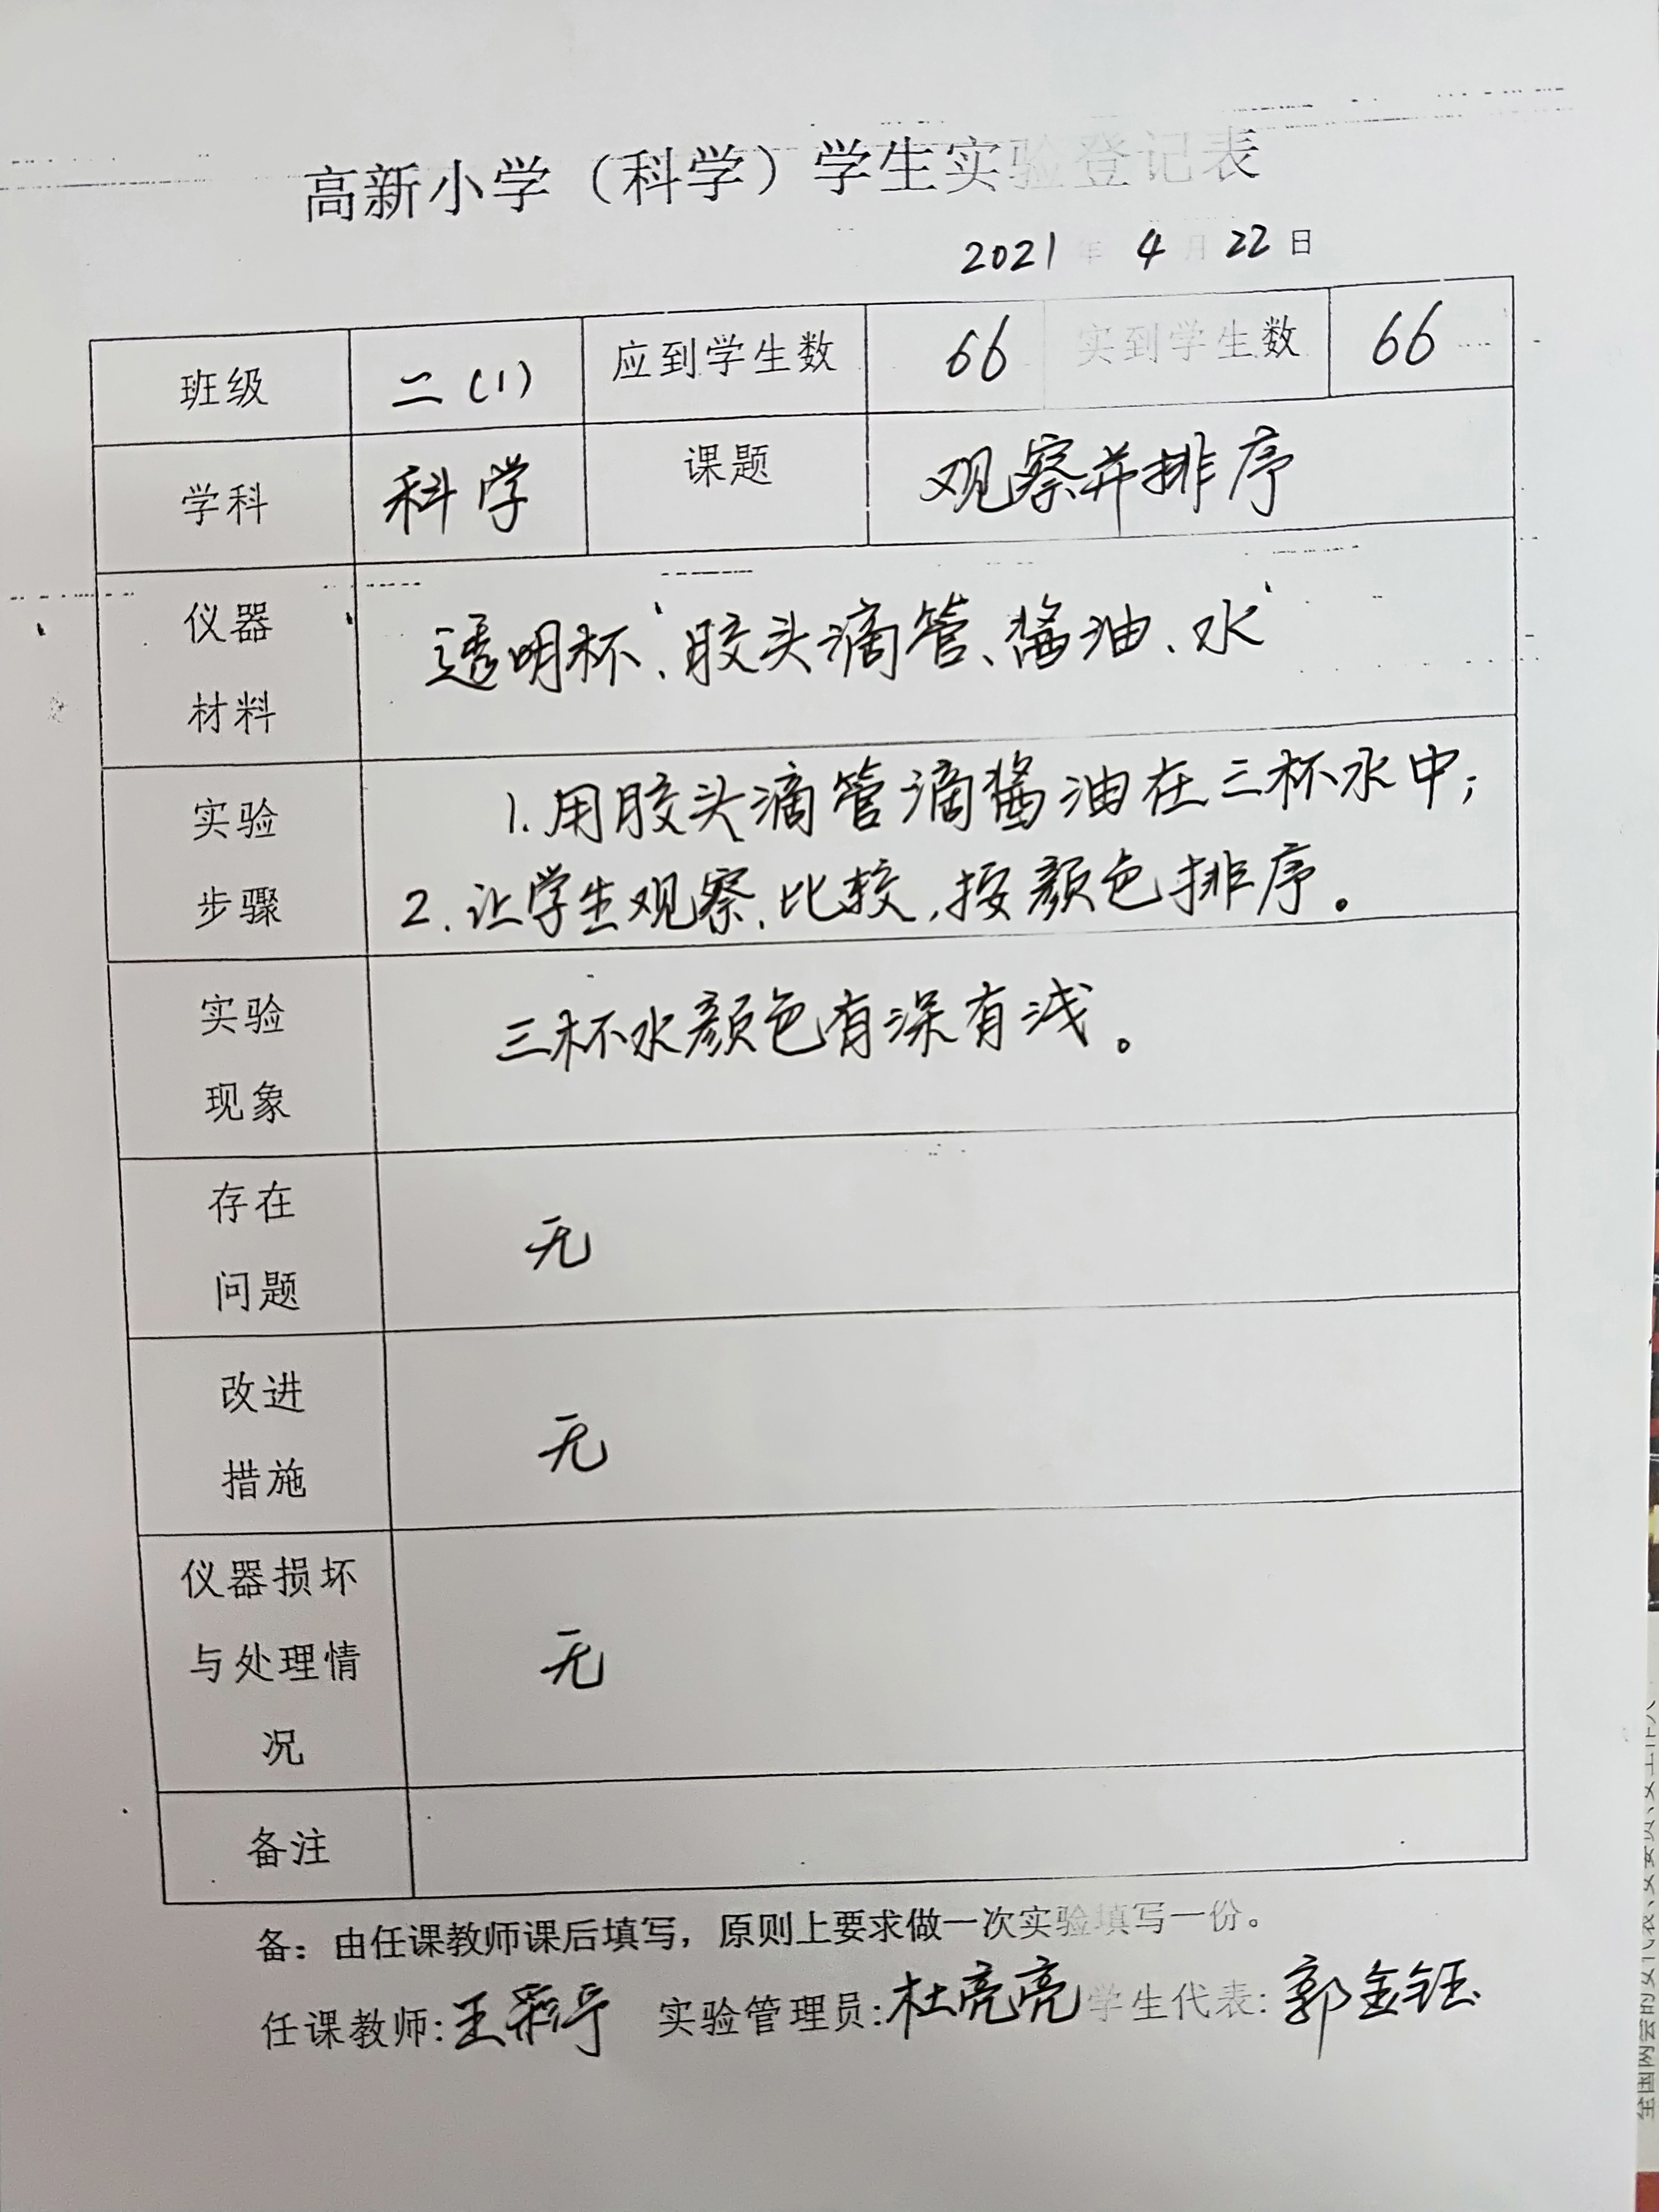 高新小学（科学）学生实验登记表
2021年 4月 22日
班级 二（1） 应到学生数 66 实到学生数 66
学科 科学 课题 观察并排序
仪器
材料
透明杯、胶头滴管、酱油、水
实验
步骤
1.用胶头滴管滴酱油在三杯水中；
2.让学生观察、比较，按颜色排序。
实验
现象
三杯水颜色有深有浅。
存在
问题
无
改进
措施
无
仪器损坏
与处理情
况
无
备注
备：由任课教师课后填写，原则上要求做一次实验填写一份。
任课教师：王 实验管理员：杜亮亮 学生代表：郭金钰